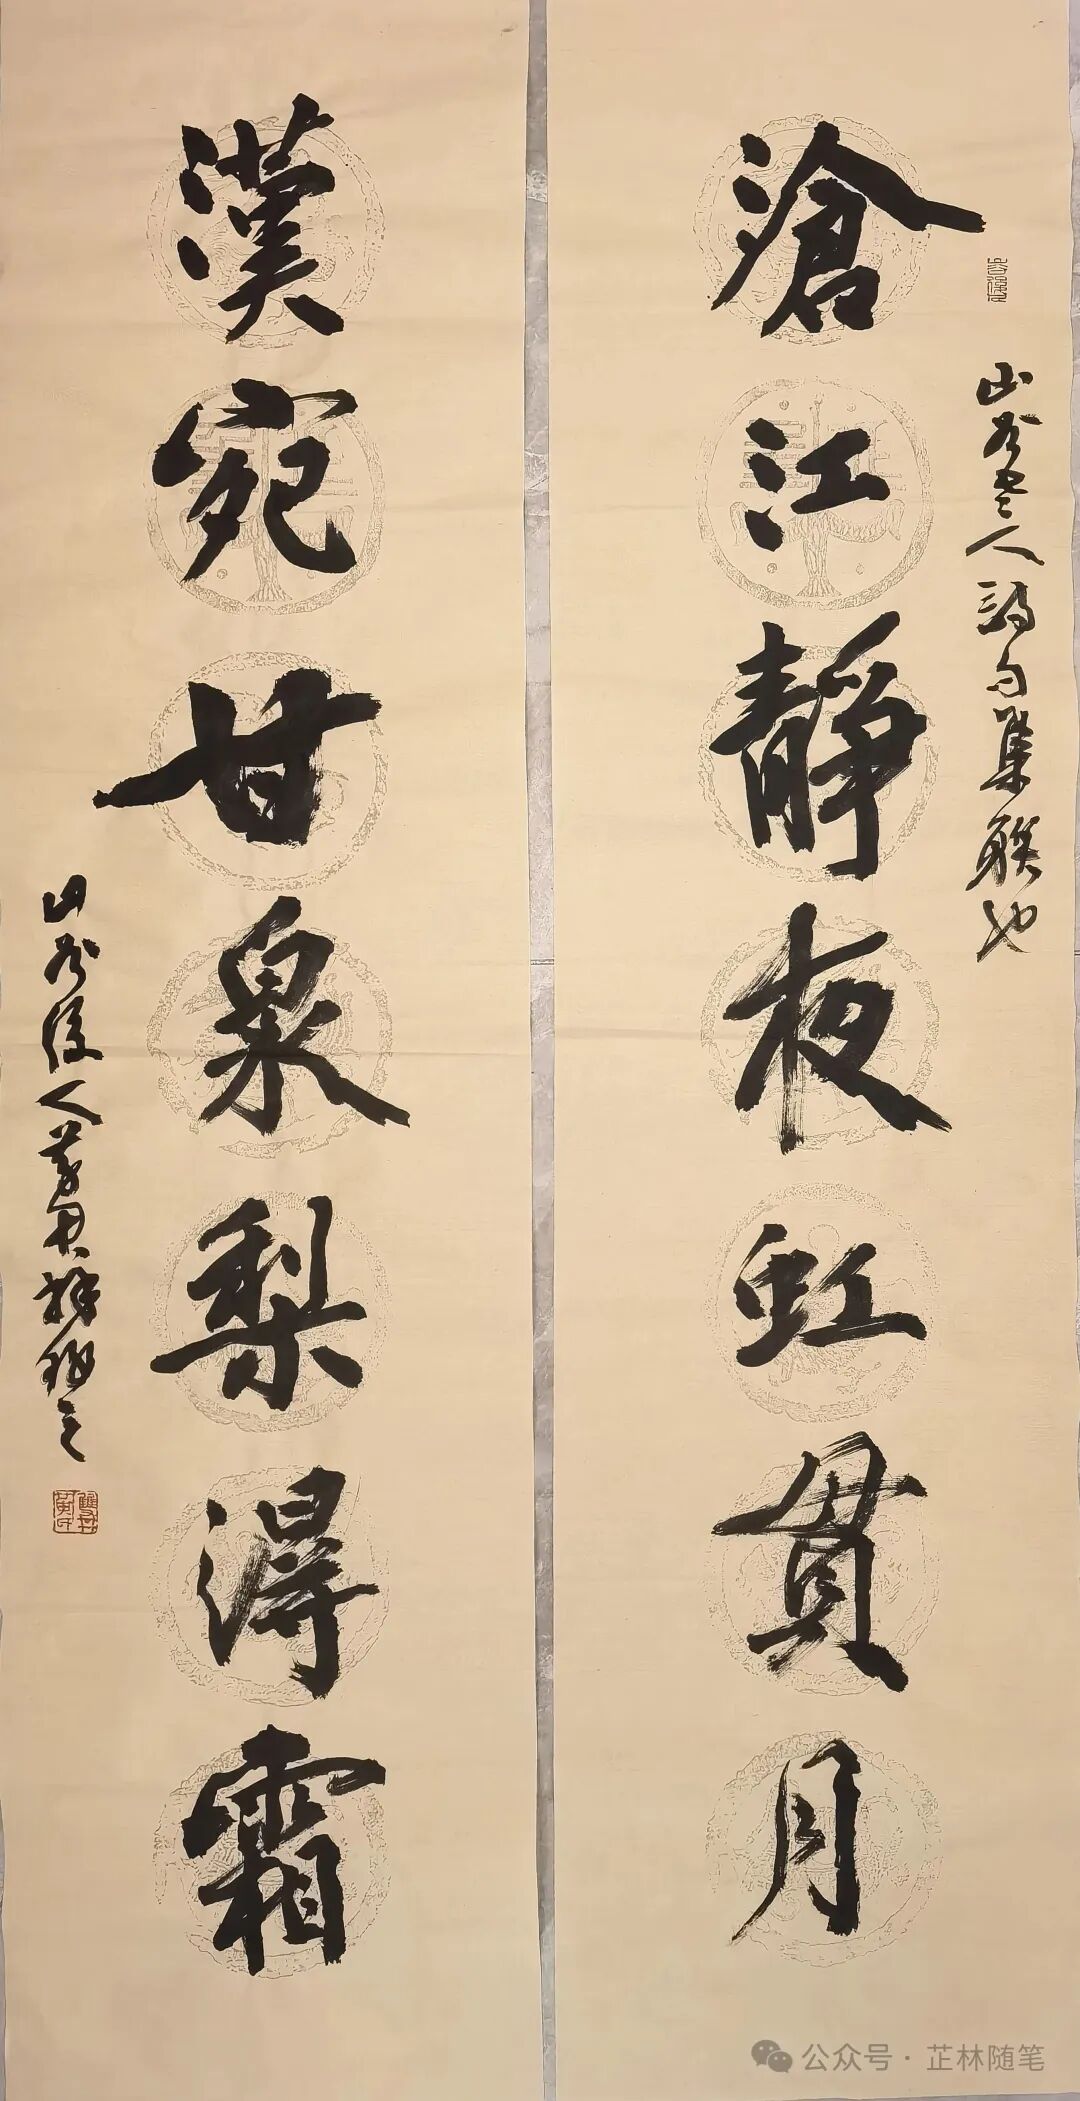 滄江靜夜虹貫月
山谷老人詩句集聯也
漢宛甘泉梨得霜
山谷後人
雙井黃氏
公众号·芷林随笔